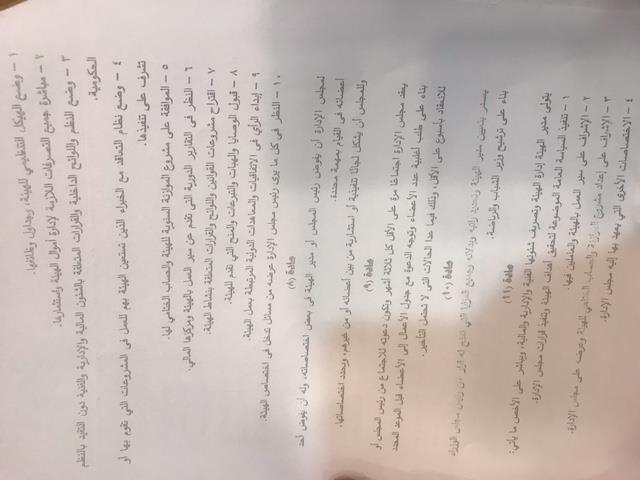 ١ – وضع الهيكل التنظيمي للهيئة، وجداول وظائفها.
٢ – مباشرة جميع التصرفات اللازمة لإدارة أموال الهيئة واستثمارها.
٣ – وضع النظم واللوائح الداخلية والقرارات المتعلقة بالشئون المالية والإدارية والفنية دون التقيد بالنظم
الحكومية.
٤ – وضع نظام التعاقد مع الخبراء الذين تستعين الهيئة بهم للعمل فى المشروعات التي تقوم بها أو
تشرف على تنفيذها.
٥ – الموافقة على مشروع الموازنة السنوية للهيئة والحساب الختامي لها.
٦ – النظر فى التقارير الدورية التى تقدم عن سير العمل بالهيئة ومركزها المالي.
٧ – اقتراح مشروعات القوانين واللوائح والقرارات المتعلقة بنشاط الهيئة.
٨ – قبول الوصايا والهبات والتبرعات والمنح التي تقدم للهيئة.
٩ – إبداء الرأي فى الاتفاقيات والمعاهدات الدولية المرتبطة بعمل الهيئة.
١٠ – النظر فى كل ما يرى رئيس مجلس الإدارة عرضه من مسائل تدخل فى اختصاص الهيئة.
مادة (٨)
لمجلس الإدارة أن يفوض رئيس المجلس أو مدير الهيئة فى بعض اختصاصاته، وله أن يفوض أحد
أعضائه فى القيام بمهمة محددة.
وللمجلس أن يشكل لجانًا تنفيذية أو استشارية من بين أعضائه أو من غيرهم، ويحدد اختصاصاتها.
مادة (٩)
يعقد مجلس الإدارة اجتماعًا مرة على الأقل كل ثلاثة أشهر وتكون دعوته للاجتماع من رئيس المجلس أو
بناء على طلب أغلبية عدد الأعضاء وتوجه الدعوة مع جدول الأعمال إلى الأعضاء قبل الموعد المحدد
للانعقاد بأسبوع على الأقل، وذلك فيما عدا الحالات التي لا تحتمل التأخير.
مادة (١٠)
يصدر بتعيين مدير الهيئة وتحديد راتبه وبدلاته وجميع المزايا التي تمنح له قرار من رئيس مجلس الوزراء
بناء على ترشيح وزير الشباب والرياضة.
مادة (١١)
يتولى مدير الهيئة إدارة الهيئة وتصريف شئونها الفنية والإدارية والمالية، ويباشر على الأخص ما يأتي:
١ – تنفيذ السياسة العامة الموضوعة لتحقيق أهداف الهيئة وتنفيذ قرارات مجلس الإدارة.
٢ – الإشراف على سير العمل بالهيئة والعاملين بها.
٣ – الإشراف على إعداد مشروع الموازنة والحساب الختامي للهيئة وعرضه على مجلس الإدارة.
٤ – الاختصاصات الأخرى التي يعهد بها إليه مجلس الإدارة.